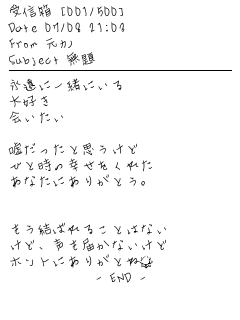 受信箱 [001/500]
Date 07/08 21:03
From 元カノ
Subject 無題
永遠に一緒にいる
大好き
会いたい
嘘だったと思うけど
ひと時の幸せをくれた
あなたにありがとう。
もう結ばれることはない
けど、声も届かないけど
ホントにありがとね
- END -